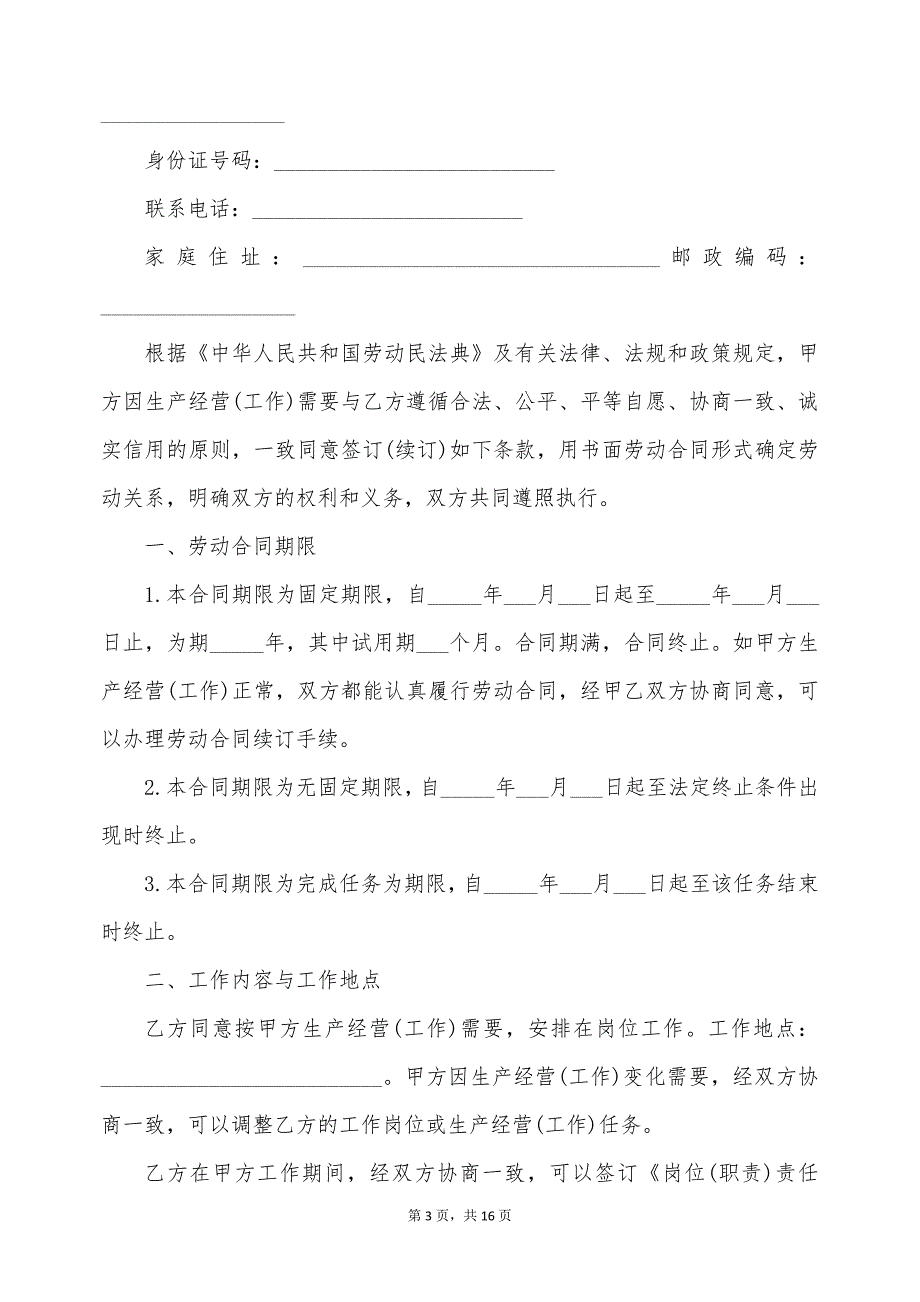 _________________
身份证号码：__________________________
联系电话：_________________________
家庭住址：_________________________________邮政编码：
__________________
根据《中华人民共和国劳动民法典》及有关法律、法规和政策规定，甲
方因生产经营(工作)需要与乙方遵循合法、公平、平等自愿、协商一致、诚
实信用的原则，一致同意签订(续订)如下条款，用书面劳动合同形式确定劳
动关系，明确双方的权利和义务，双方共同遵照执行。
一、劳动合同期限
1.本合同期限为固定期限，自_____年___月___日起至_____年___月___
日止，为期_____年，其中试用期___个月。合同期满，合同终止。如甲方生
产经营(工作)正常，双方都能认真履行劳动合同，经甲乙双方协商同意，可
以办理劳动合同续订手续。
2.本合同期限为无固定期限，自_____年___月___日起至法定终止条件出
现时终止。
3.本合同期限为完成任务为期限，自_____年___月___日起至该任务结束
时终止。
二、工作内容与工作地点
乙方同意按甲方生产经营(工作)需要，安排在岗位工作。工作地点：
__________________________。甲方因生产经营(工作)变化需要，经双方协
商一致，可以调整乙方的工作岗位或生产经营(工作)任务。
乙方在甲方工作期间，经双方协商一致，可以签订《岗位(职责)责任
第 3 页，共 16 页